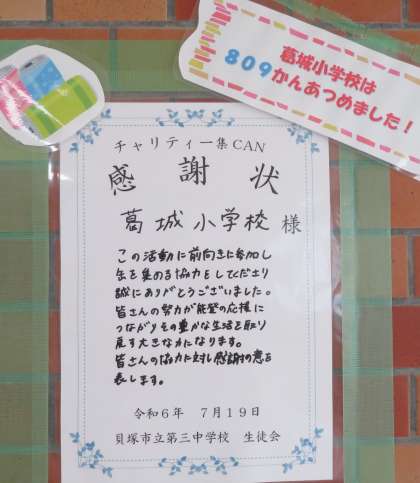 葛城小学校は
809かんあつめました!
チャリティー集CAN
感謝状
葛城小学校 様
この活動に前向きに参加し
缶を集める協力をしてくださり
誠にありがとうございました。
皆さんの努力が能登の応援に
つながりその豊かな生活を取り
戻す大きな力になります。
皆さんの協力に対し感謝の意を
表します。
令和6年 7月19日
貝塚市立第三中学校 生徒会